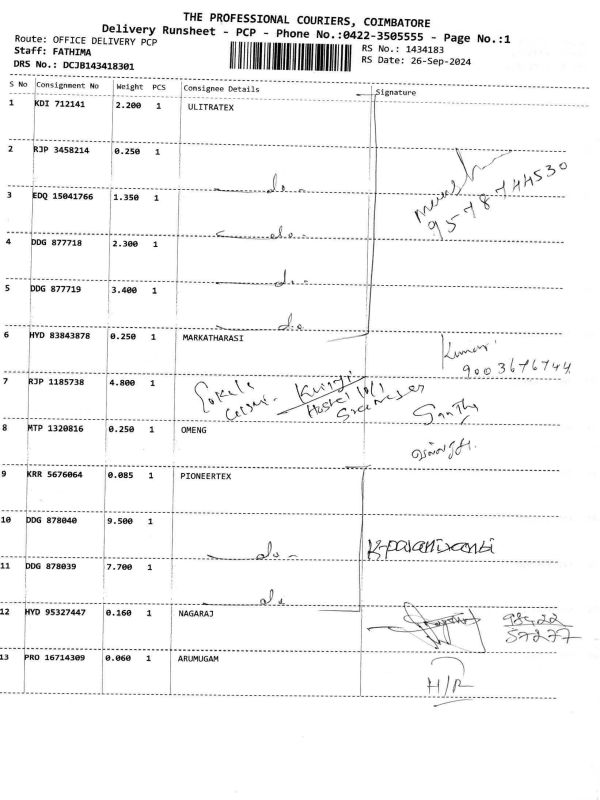 THE PROFESSIONAL COURIERS, COIMBATORE
Delivery Runsheet - PCP - Phone No.:0422-3505555 - Page No.:1
Route: OFFICE DELIVERY PCP
Staff: FATHIMA
DRS No.: DCJB143418301
RS No.: 1434183
RS Date: 26-Sep-2024
S No Consignment No Weight PCS Consignee Details Signature
1 KDI 712141 2.200 1 ULITRATEX
2 RJP 3458214 0.250 1
do
9578744530
3 EDQ 15041766 1.350 1
do
4 DDG 877718 2.300 1
do
5 DDG 877719 3.400 1
do
6 HYD 83843878 0.250 1 MARKATHARASI
Kumar
9003676744
7 RJP 1185738 4.800 1
Hostel
8 MTP 1320816 0.250 1 OMENG
9 KRR 5676064 0.085 1 PIONEERTEX
10 DDG 878040 9.500 1
do
11 DDG 878039 7.700 1
do
12 HYD 95327447 0.160 1 NAGARAJ
59277
13 PRO 16714309 0.060 1 ARUMUGAM
H/R